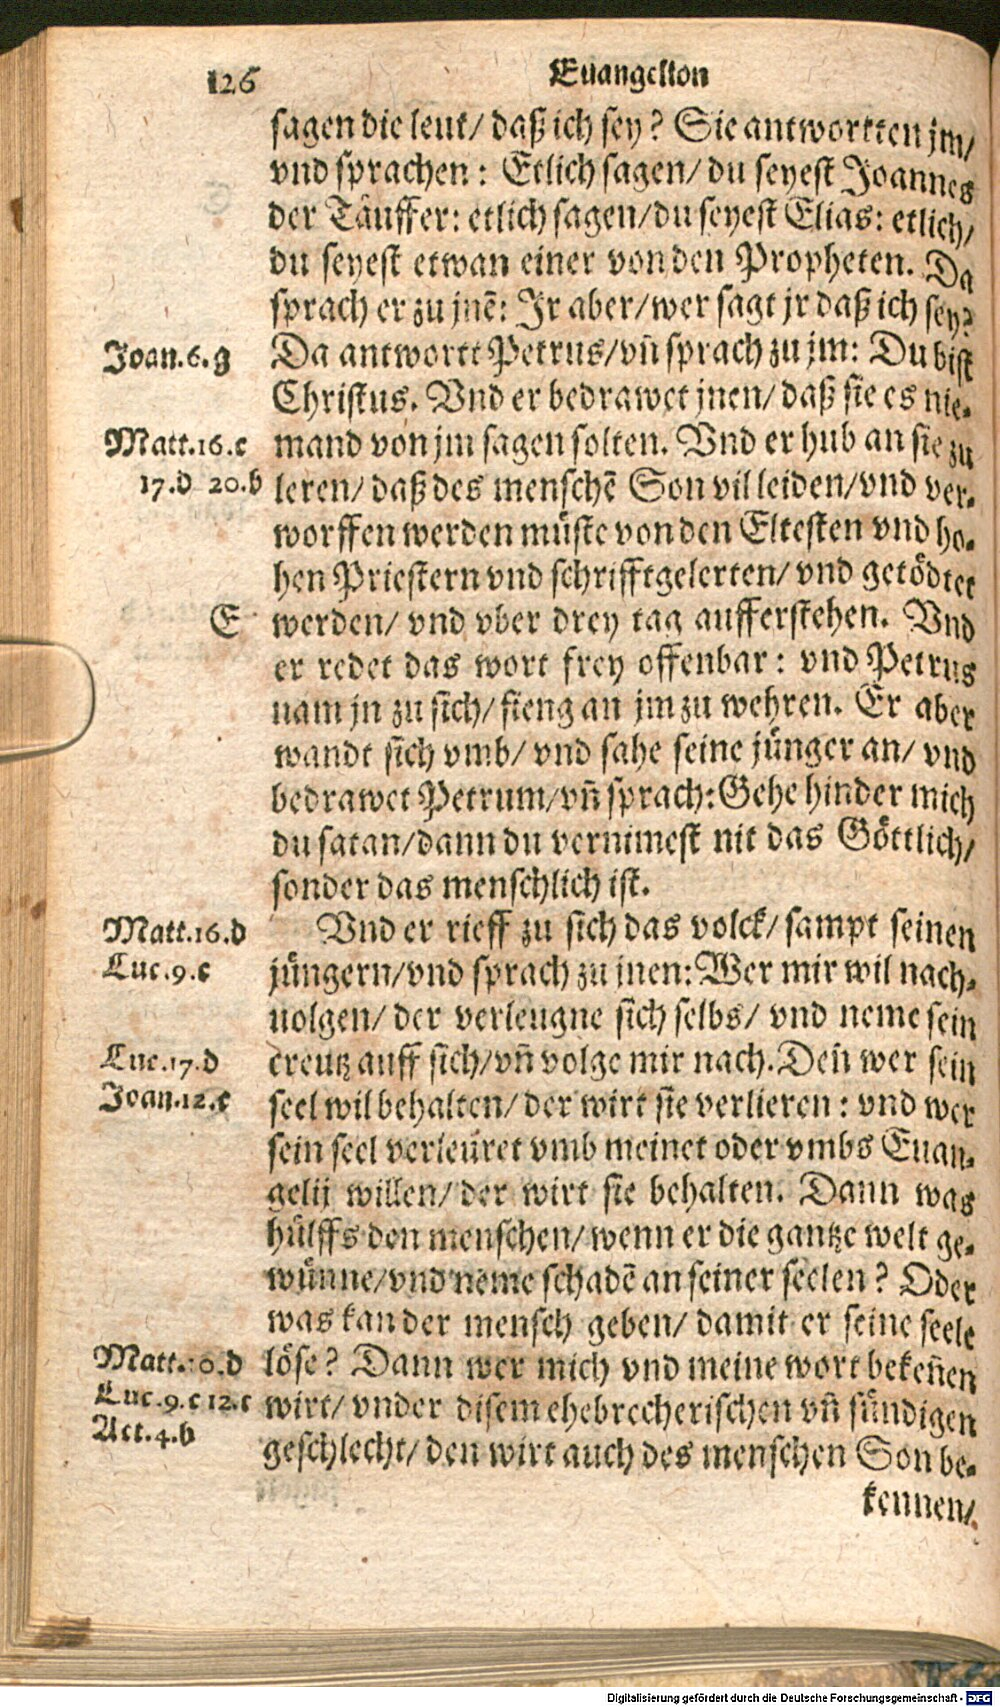 126 Euangelion
sagen die leut/ daß ich sey? Sie antwortten jm/
vnd sprachen: Etlich sagen/ du seyest Joannes
der Täuffer: etlich sagen/du seyest Elias: etlich/
du seyest etwan einer von den Propheten. Da
sprach er zu jnē: Jr aber/wer sagt jr daß ich sey?
Joan.6.g Da antwortt Petrus/vñ sprach zu jm: Du bist
Christus. Vnd er bedrawet jnen/ daß sie es nie-
Matt.16.c mand von jm sagen solten. Vnd er hub an sie zu
17.d 20.b leren/ daß des menschē Son vil leiden/vnd ver-
worffen werden müste von den Eltesten vnd ho-
hen Priestern vnd schrifftgelerten/ vnd getödtet
E werden/ vnd vber drey tag aufferstehen. Vnd
er redet das wort frey offenbar: vnd Petrus
nam jn zu sich/ fieng an jm zu wehren. Er aber
wandt sich vmb/ vnd sahe seine jünger an/ vnd
bedrawet Petrum/vñ sprach:Gehe hinder mich
du satan/dann du vernimest nit das Göttlich/
sonder das menschlich ist.
Matt.16.d Vnd er rieff zu sich das volck/ sampt seinen
Luc.9.c jüngern/vnd sprach zu jnen: Wer mir wil nach-
uolgen/ der verleugne sich selbs/ vnd neme sein
Luc.17.d creutz auff sich/vñ volge mir nach. Deñ wer sein
Joan.12.c seel wil behalten/ der wirt sie verlieren: vnd wer
sein seel verleüret vmb meinet oder vmbs Euan-
gelij willen/ der wirt sie behalten. Dann was
hülffs den menschen/wenn er die gantze welt ge-
wünne/vnd neme schadē an seiner seelen? Oder
was kan der mensch geben/ damit er seine seele
Matt.10.d löse? Dann wer mich vnd meine wort bekeñen
Luc.9.c 12.c wirt/ vnder disem ehebrecherischen vñ sündigen
Act.4.b geschlecht/ den wirt auch des menschen Son be-
kennen/
Digitalisierung gefördert durch die Deutsche Forschungsgemeinschaft - DFG